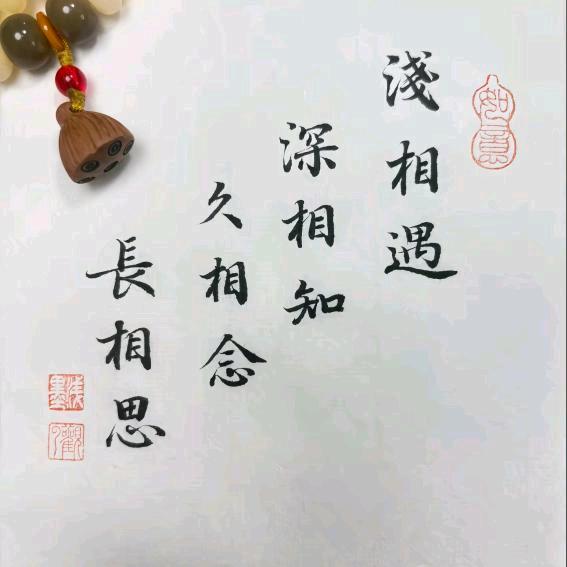 如意
淺相遇
深相知
久相念
長相思